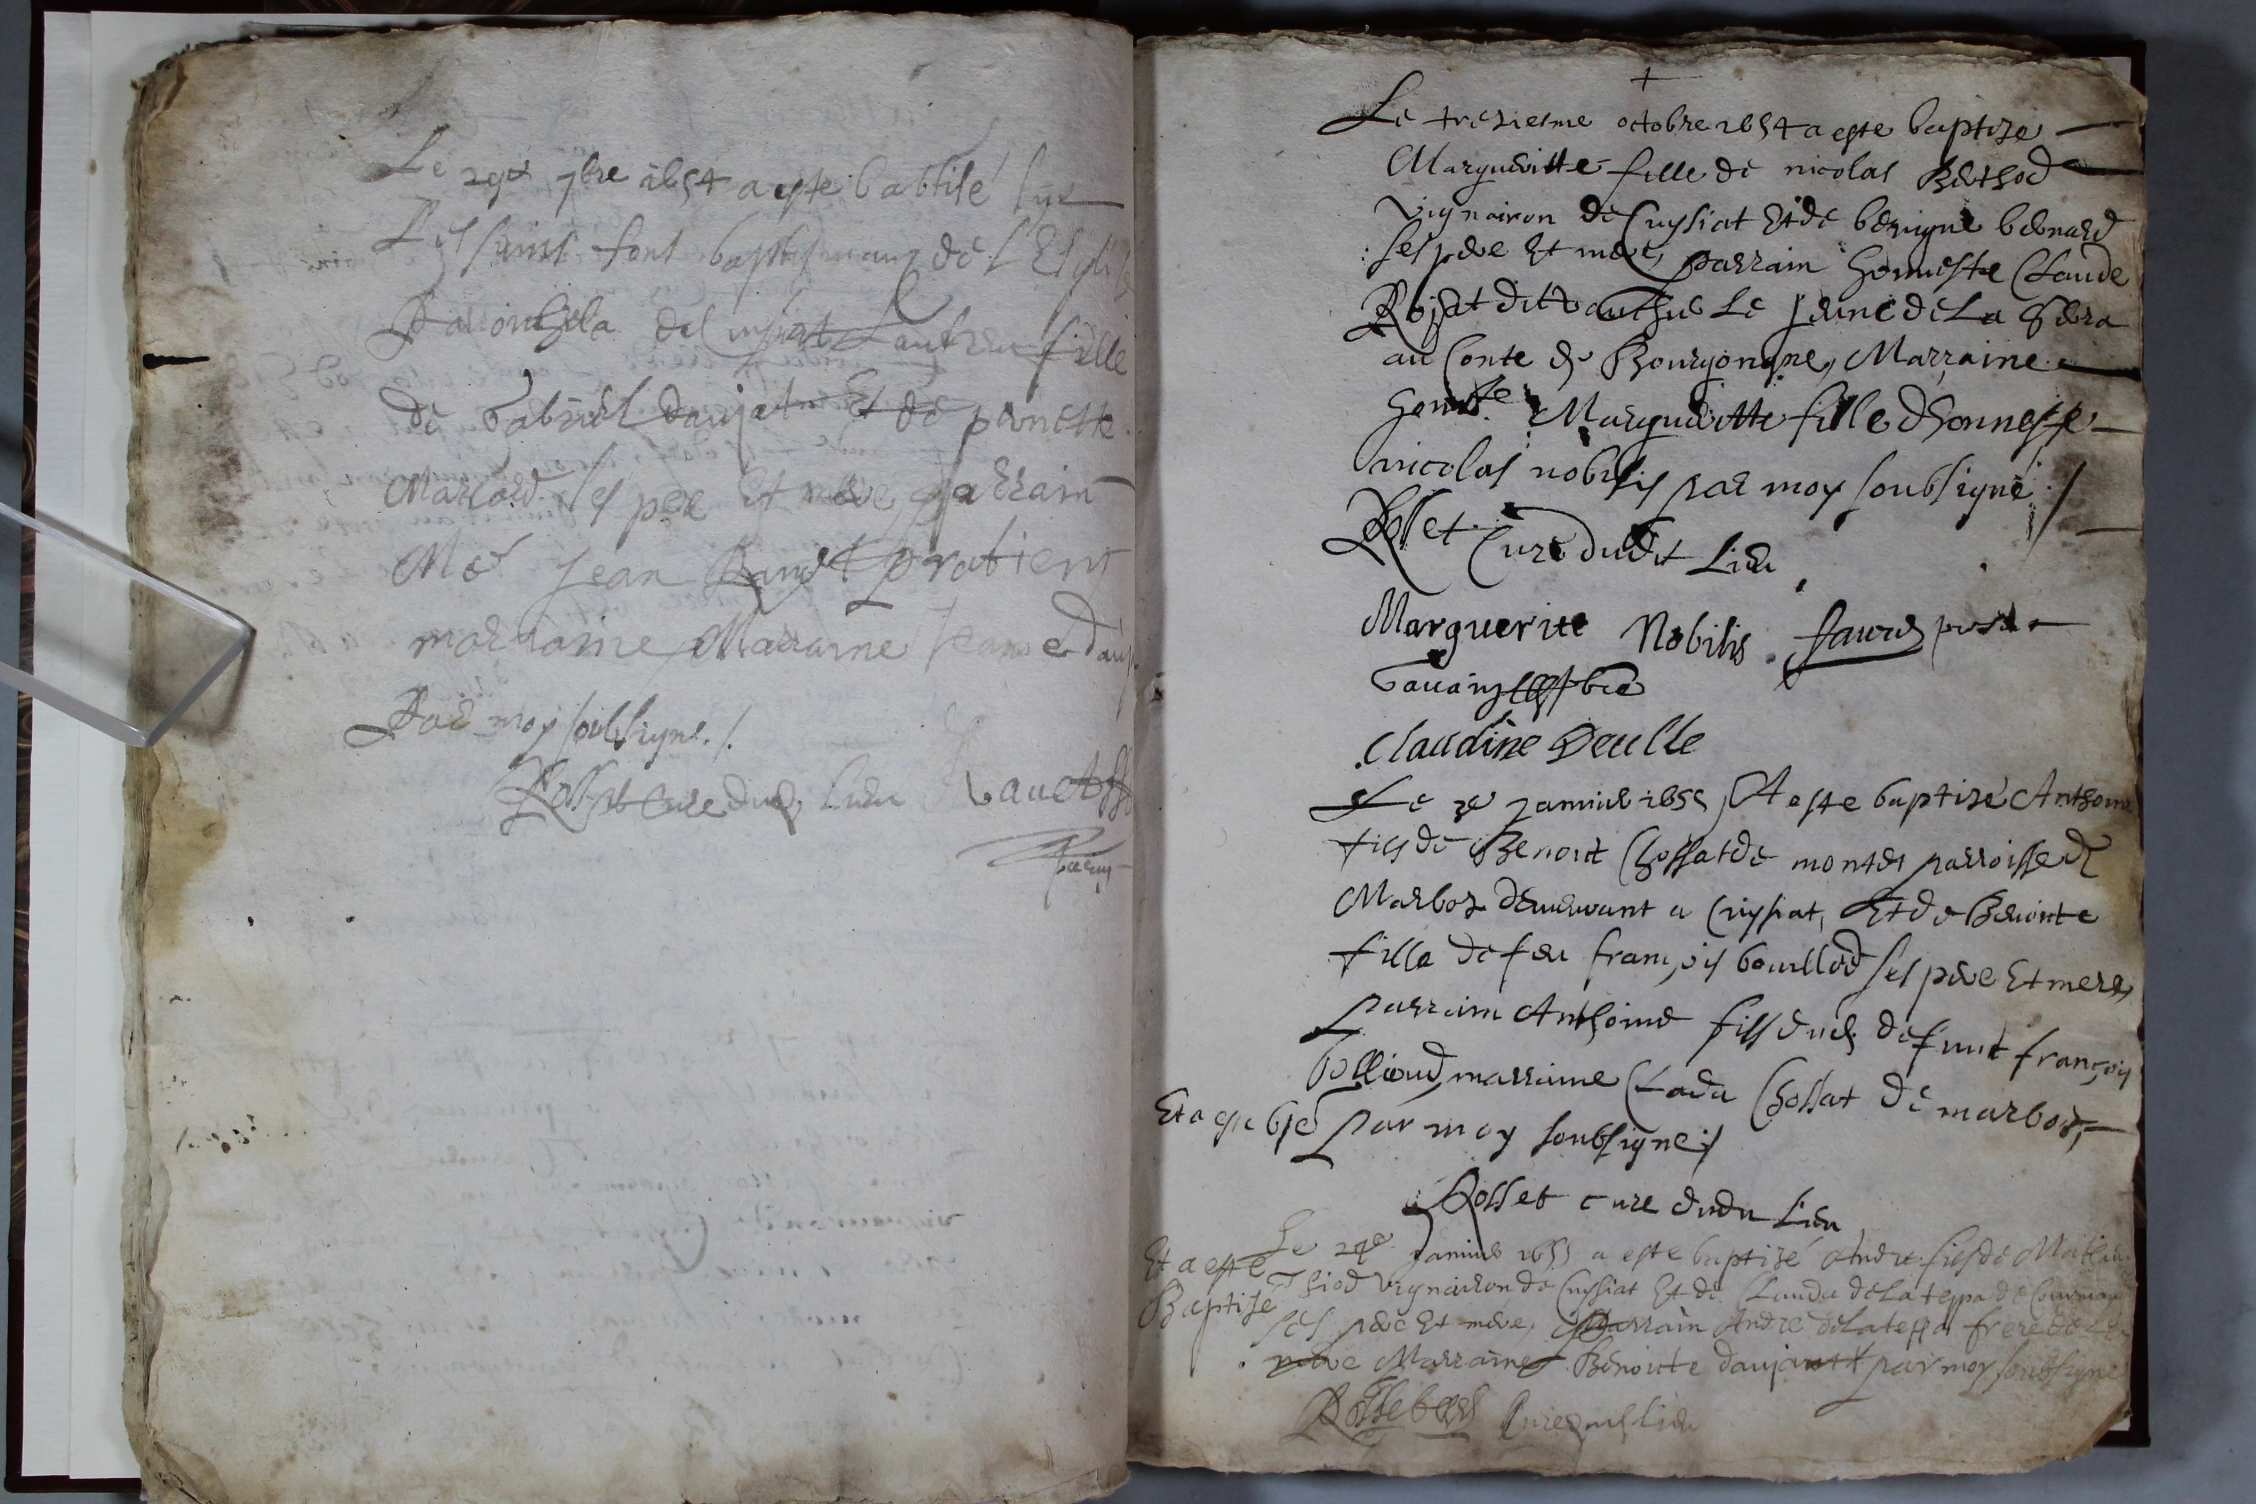 Le 29e 7bre 1654 a este babtisé
Les saints fonts baptismaux de l'Esglise
Parrochiela de Cuysiat fille
de Gabriel daujat Et de pernette
Marrod ses pere Et mere, parrain
Me Jean pratiens
marraine Marraine Jeanne
Par moy soubsigne ./.
Rosset Cure dud Lieu
+
Le tresiesme octobre 1654 a este baptize
Margueritte fille de nicolas Berthod
vignairon de Cuysiat Et de benigne bernard
ses pere Et mere, parrain honneste Claude
Le Jeune de La
au Conte de Bourgongne, Marraine
honeste Marguevitte fille d'honneste
nicolas nobilis par moy soubsigné ./
Rosset Cure dudit Lieu
Marguerite Nobilis
Claudine
Le 3e Janvier 1655 A este baptizé Anthoine
fils de Benoit Chossat de montet parroisse de
Marboz demeurant a Cuysiat, Et de Benoite
fille de feu françois bouillod ses pere Et mere,
parrain Anthoine fils dud defunt françois
marraine Clada Chossat de marbos,
Et a este bsé par moy soubsigne ./
Rosset cure dudu Lieu
Le 29e Janvier 1655 a este baptizé Andre fils de Mathieu
Et a este
Baptise
Thiod vignairon de Cuysiat Et de Clauda de La teppa de
ses pere Et mere, parrain André de La teppa frere de La
mere Marraine Benoicte daujat par moy soubsigne
Rosset Cure dud Lieu